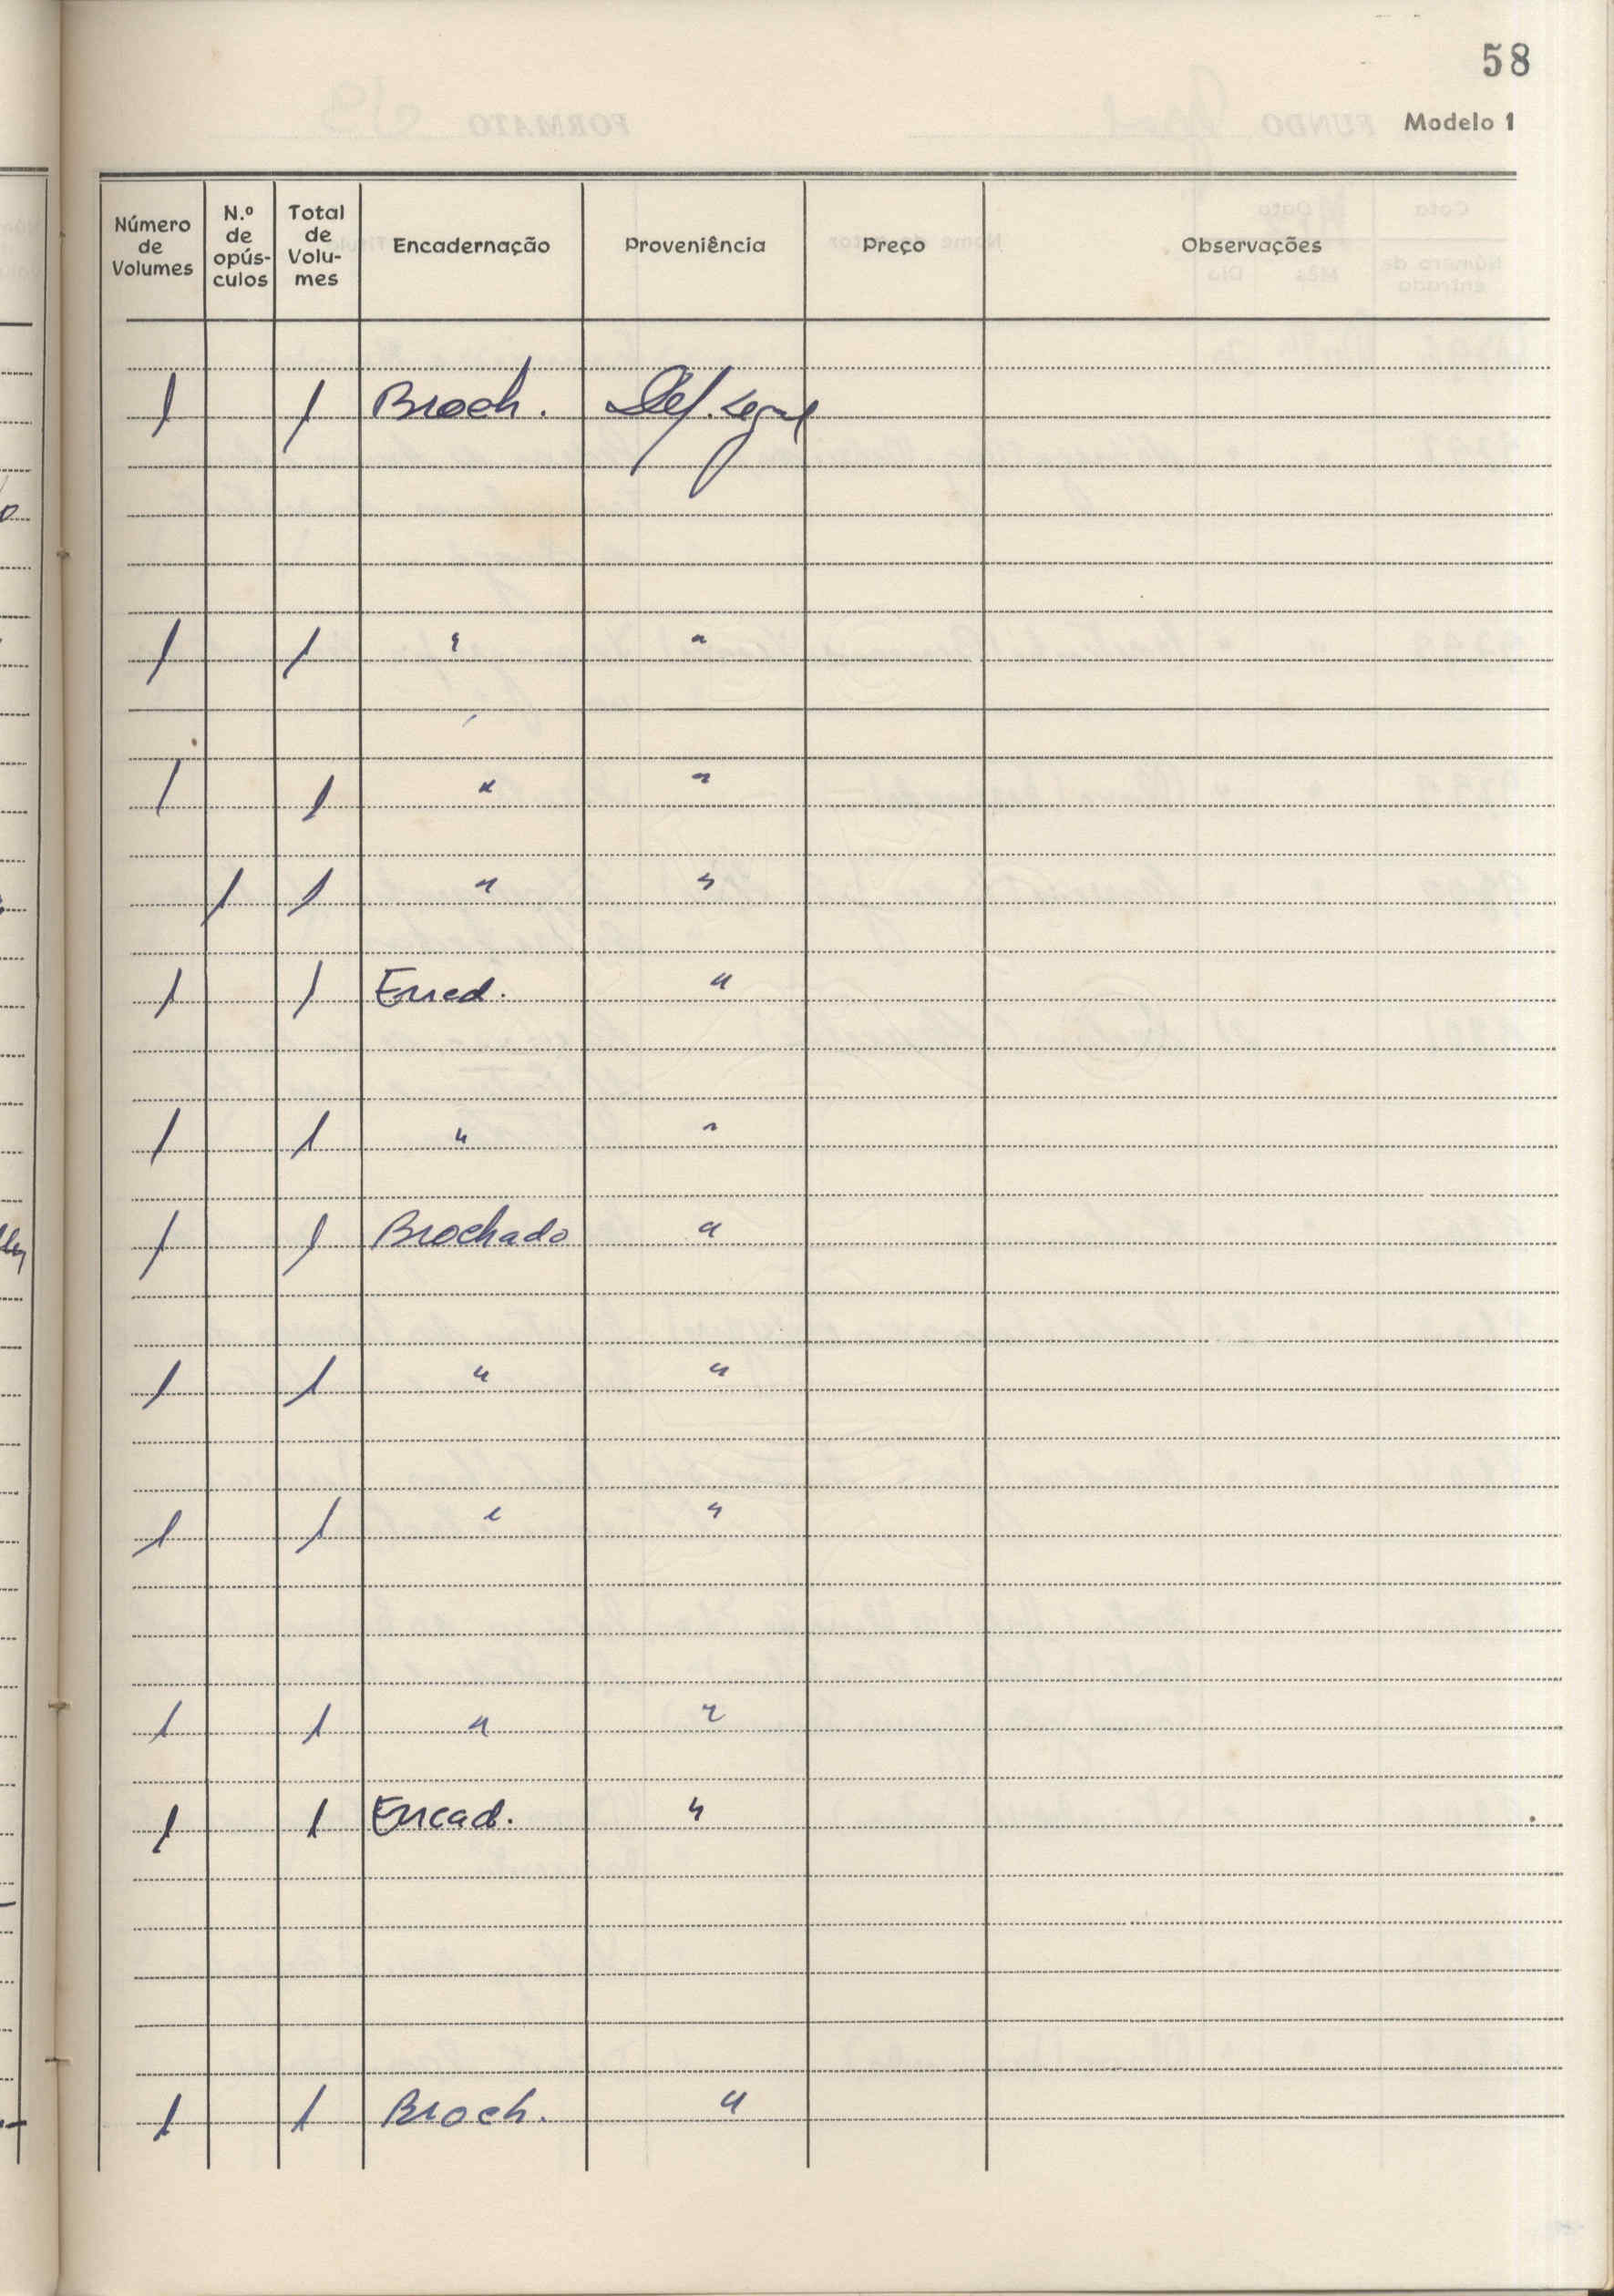 58
Modelo 1
Número de Volumes | N.º de opúsculos | Total de Volumes | Encadernação | Proveniência | Preço | Observações
1 | | 1 | Broch. | Dep. Legal
1 | | 1 | " | "
1 | | 1 | " | "
| 1 | 1 | " | "
1 | | 1 | Encad. | "
1 | | 1 | " | "
1 | | 1 | Brochado | "
1 | | 1 | " | "
1 | | 1 | " | "
1 | | 1 | " | "
1 | | 1 | Encad. | "
1 | | 1 | Broch. | "